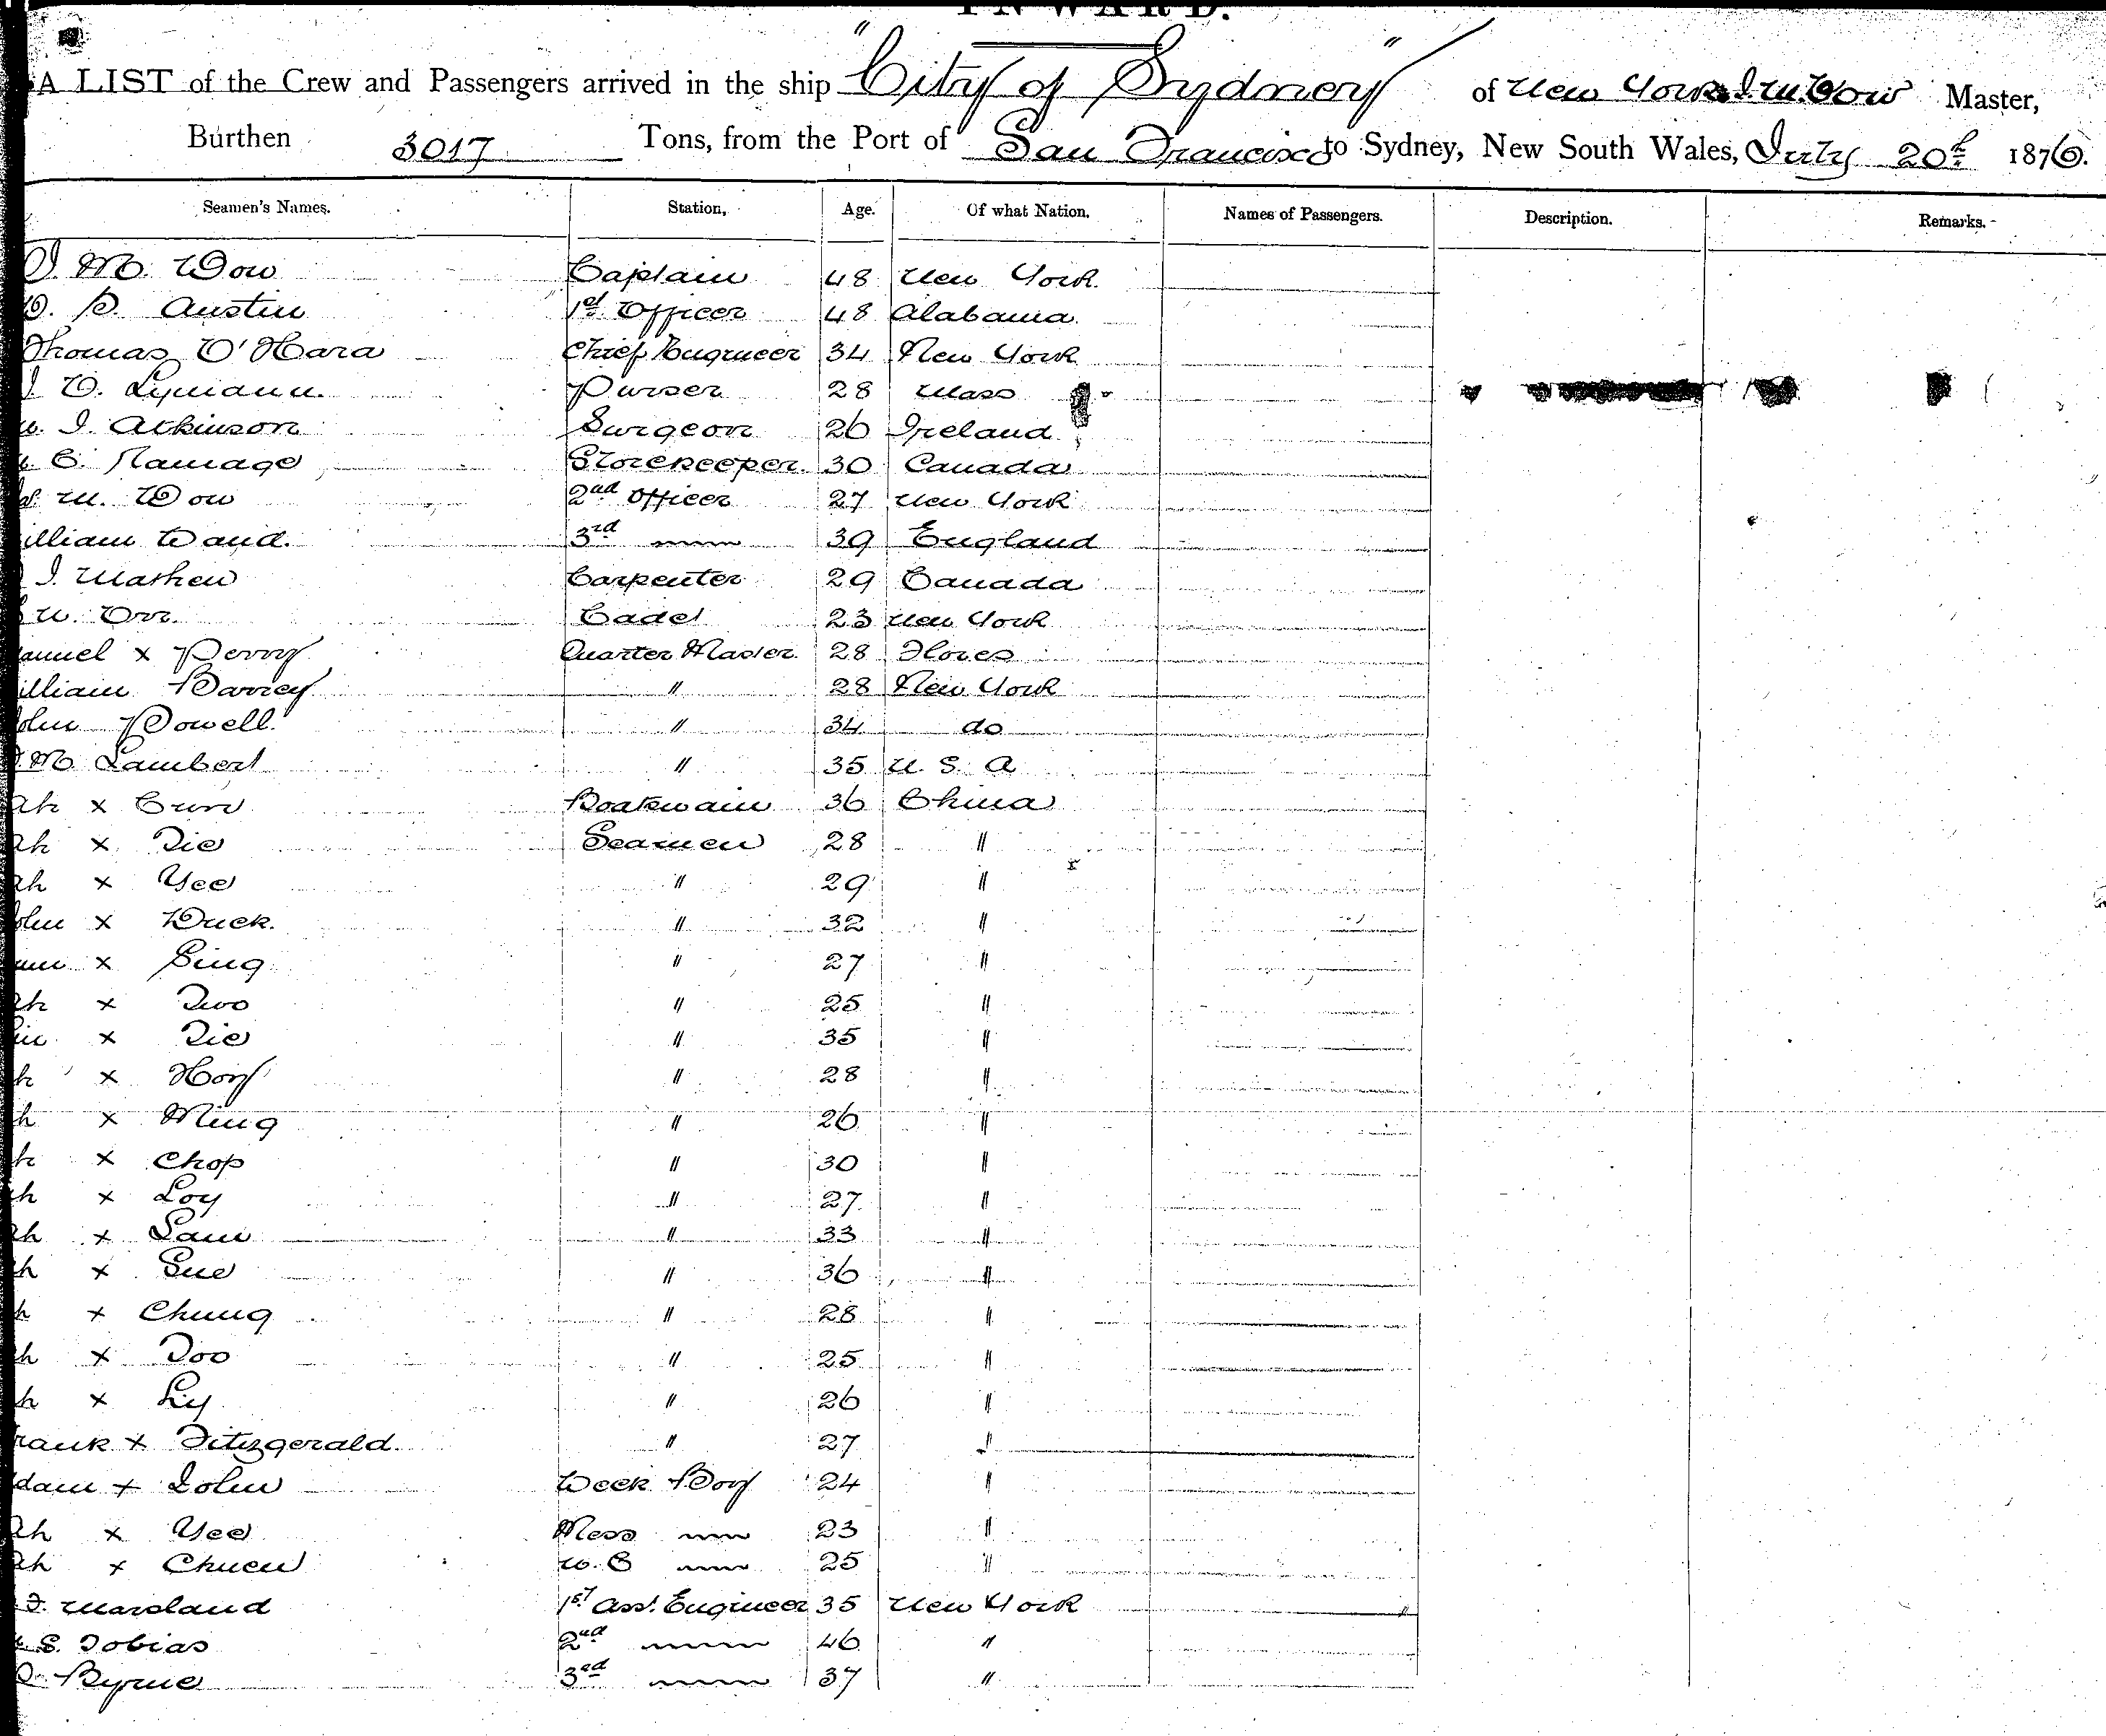 INWARD.
A LIST of the Crew and Passengers arrived in the ship "City of Sydney" of New York J. M. Dow Master,
Burthen 3017 Tons, from the Port of San Francisco to Sydney, New South Wales, July 20th 1876.
Seamen's Names. Station, Age. Of what Nation. Names of Passengers. Description. Remarks.
J. M. Dow Captain 48 New York
D. S. Austin 1st Officer 48 Alabama
Thomas O'Hara Chief Engineer 34 New York
O. Lymann. Purser 28 Mass
J. Atkinson Surgeon 26 Ireland
C. Ramage Storekeeper 30 Canada
M. Dow 2nd Officer 27 New York
illiam Dand. 3rd " 39 England
J. Mathew Carpenter 29 Canada
W. Orr. Cadet 23 New York
anuel x Perry Quarter Master 28 Flores
illiam Barrey " 28 New York
ohn Powell " 34 do
M Lambert " 35 U. S. A
Ah x Cum Boatswain 36 China
Ah x Tie Seamen 28 "
Ah x Yee " 29 "
ohn x Duck. " 32 "
x Sing " 27 "
Ah x Two " 25 "
x Tie " 35 "
h x Hoy " 28 "
h x Ming " 26 "
h x Chop " 30 "
h x Loy " 27 "
Ah x Lam " 33 "
h x Sue " 36 "
h x Chung " 28 "
h x Too " 25 "
h x Ly " 26 "
rank x Fitzgerald. " 27 "
dam x John Deck Boy 24 "
Ah x Yee Mess " 23 "
Ah x Chuen W. C " 25 "
F. Marsland 1st Asst. Engineer 35 New York
S. Tobias 2nd " 46 "
Byrne 3rd " 37 "